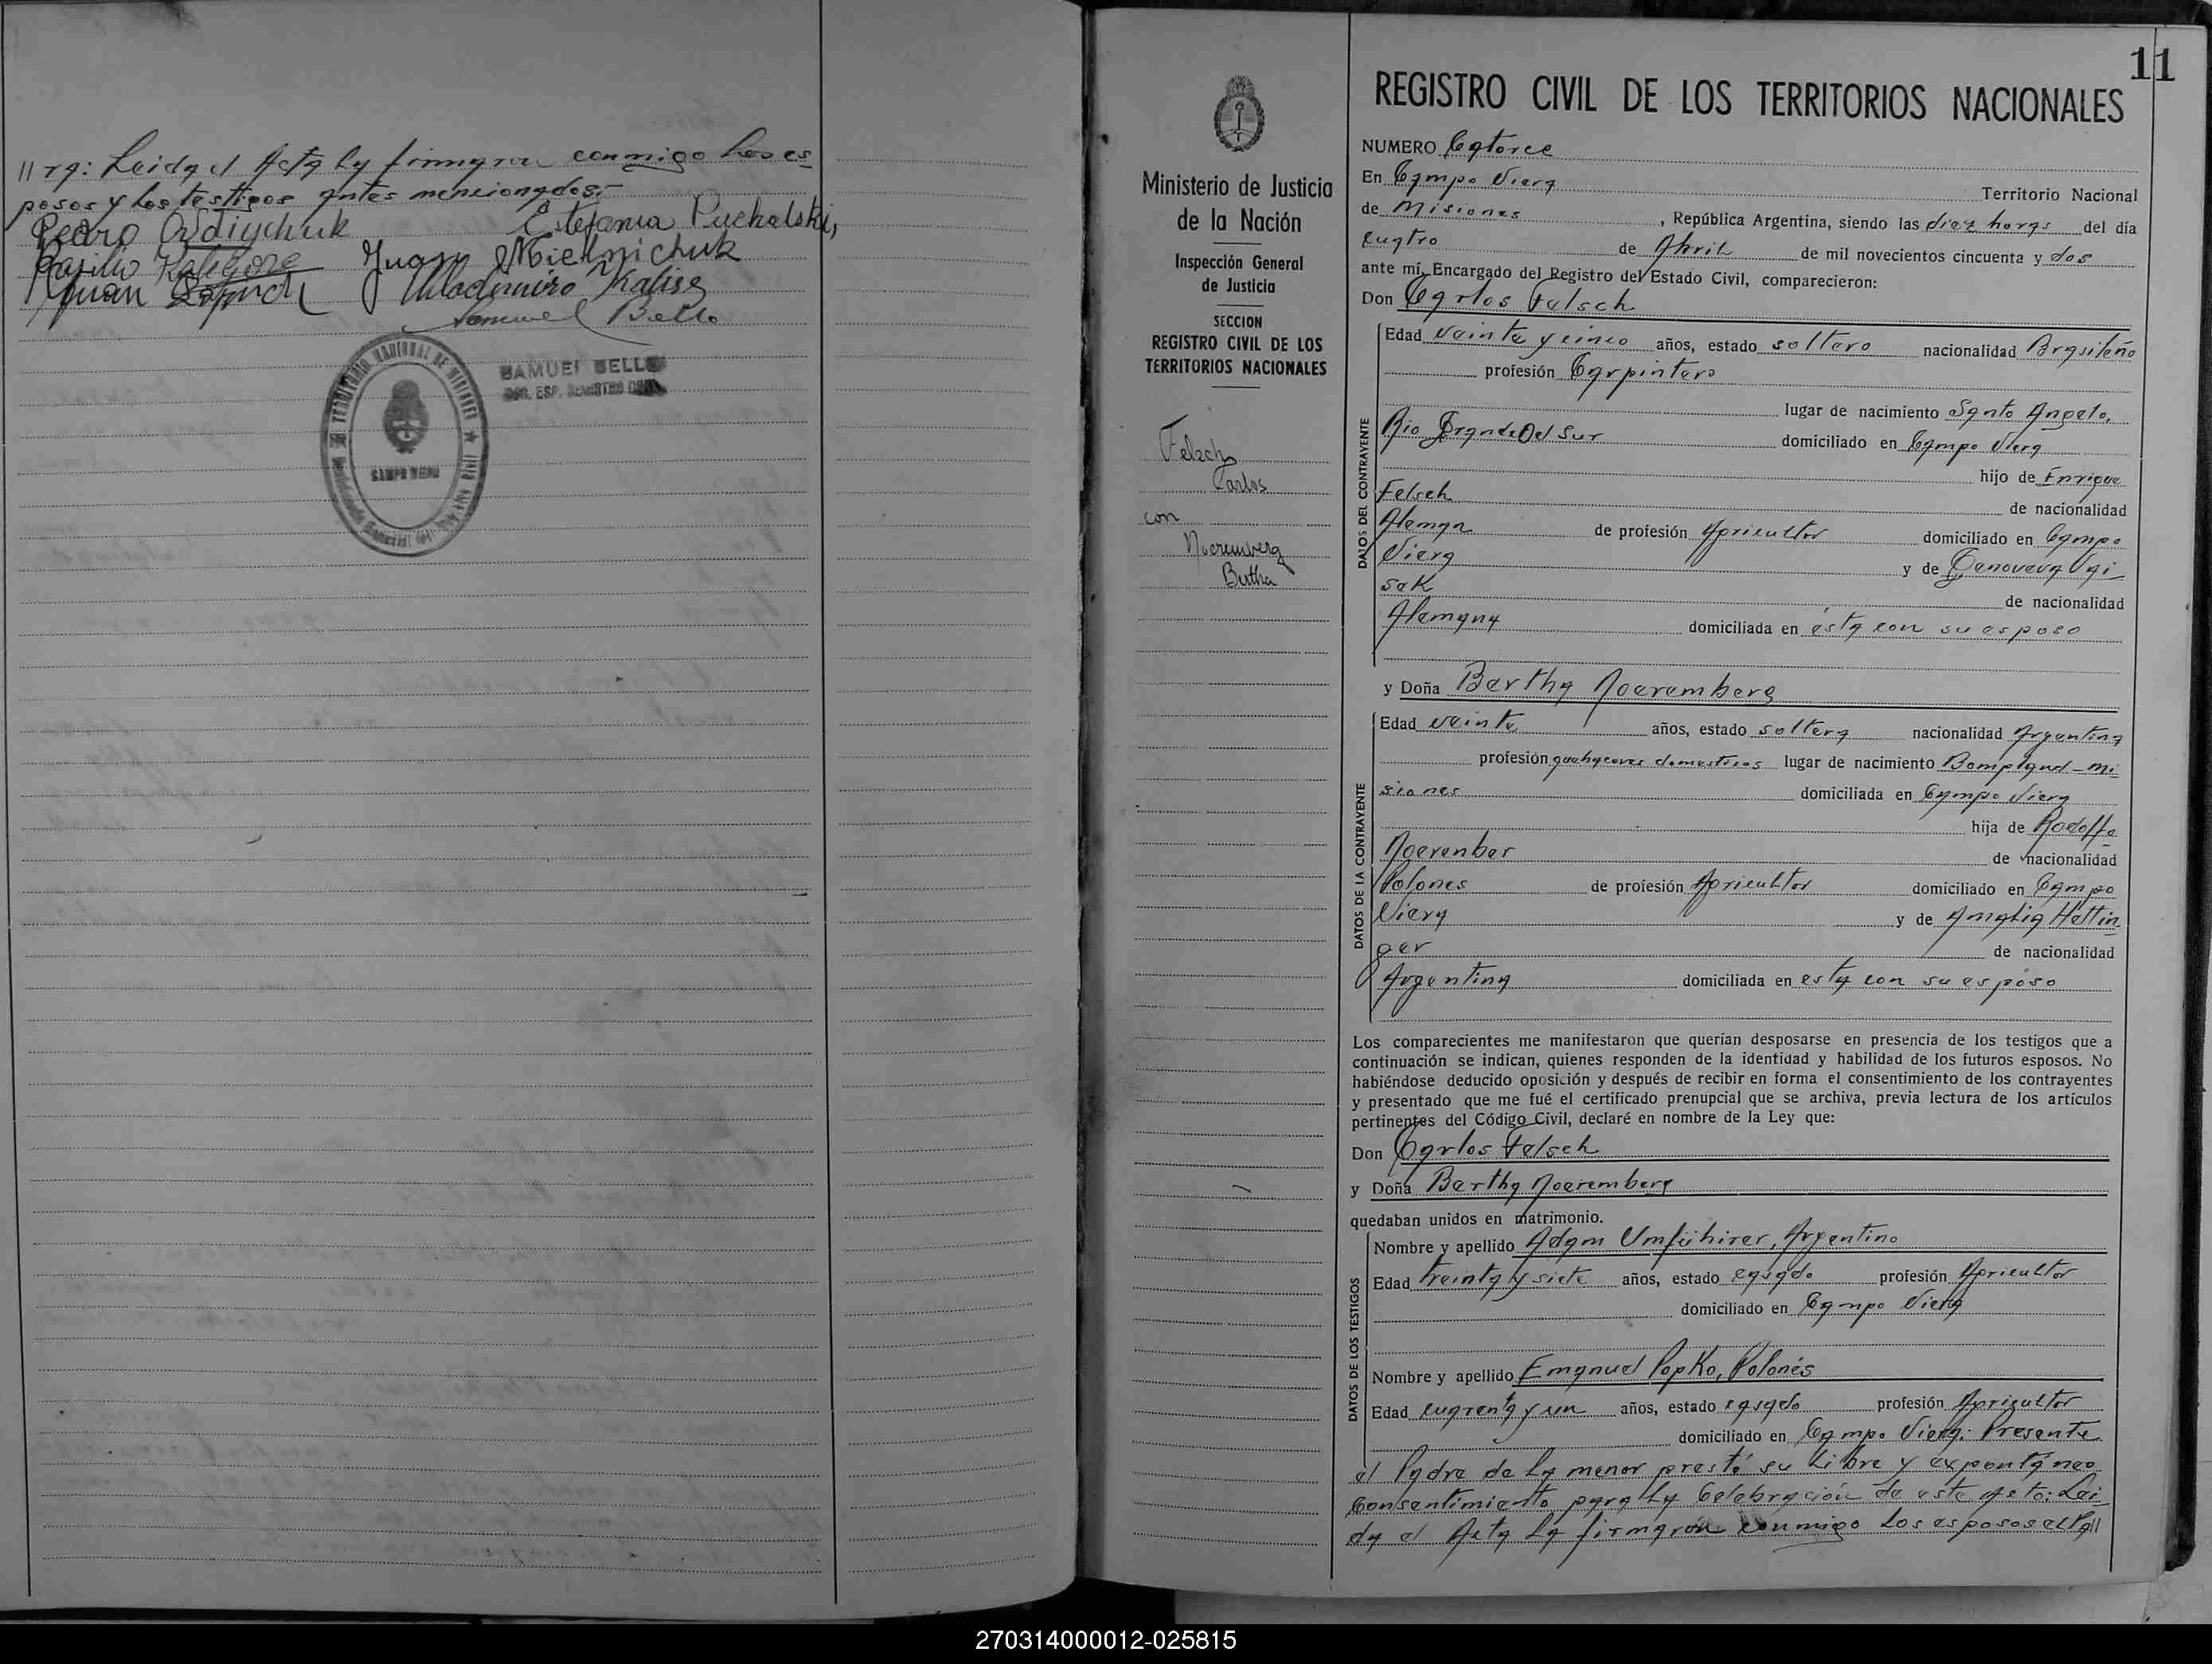 //ra: Leida el Acta la firmaron conmigo los es
posos y los testigos antes mencionados:-
Pedro Estefania Puchalski,
Basilio Juan Mielnichuk
Juan Wladimiro
Samuel Bello
TERRITORIO NACIONAL DE MISIONES
CAMPO VIERA
SAMUEL BELLO
ENC. ESP. REGISTRO CIVIL
11
Ministerio de Justicia
de la Nación
Inspección General
de Justicia
SECCION
REGISTRO CIVIL DE LOS
TERRITORIOS NACIONALES
Felsch
Carlos
con
Noeremberg
Bertha
REGISTRO CIVIL DE LOS TERRITORIOS NACIONALES
NUMERO Catorce
En Campo Viera Territorio Nacional
de Misiones, República Argentina, siendo las diez horas del día
cuatro de Abril de mil novecientos cincuenta y dos
ante mí, Encargado del Registro del Estado Civil, comparecieron:
Don Carlos Felsch
DATOS DEL CONTRAYENTE
Edad veinte y cinco años, estado soltero nacionalidad Brasileño
profesión Carpintero
lugar de nacimiento Santo Angelo,
Rio Grande Del Sur domiciliado en Campo Viera
hijo de Enrique
Felsch de nacionalidad
Alemana de profesión Agricultor domiciliado en Campo
Viera y de Genoveva
sek de nacionalidad
Alemana domiciliada en ésta con su esposo
y Doña Bertha Noeremberg
DATOS DE LA CONTRAYENTE
Edad veinte años, estado soltera nacionalidad Argentina
profesión quehaceres domesticos lugar de nacimiento Bompland-Mi
siones domiciliada en Campo Viera
hija de Rodolfo
Noerenber de nacionalidad
Polones de profesión Agricultor domiciliado en Campo
Viera y de Amalia Hettin
ger de nacionalidad
Argentina domiciliada en esta con su esposo
Los comparecientes me manifestaron que querían desposarse en presencia de los testigos que a
continuación se indican, quienes responden de la identidad y habilidad de los futuros esposos. No
habiéndose deducido oposición y después de recibir en forma el consentimiento de los contrayentes
y presentado que me fué el certificado prenupcial que se archiva, previa lectura de los artículos
pertinentes del Código Civil, declaré en nombre de la Ley que:
Don Carlos Felsch
y Doña Bertha Noeremberg
quedaban unidos en matrimonio.
DATOS DE LOS TESTIGOS
Nombre y apellido Adam Umfühirer, Argentino
Edad treinta y siete años, estado casado profesión Agricultor
domiciliado en Campo Viera
Nombre y apellido Emanuel Popko, Polonés
Edad cuarenta y un años, estado casado profesión Agricultor
domiciliado en Campo Viera: Presente
el Padre de la menor prestó su libre y expontáneo
Consentimiento para la Celebración de este acto: Lei
da el Acta la firmaron conmigo los esposos el Pa//
270314000012-025815